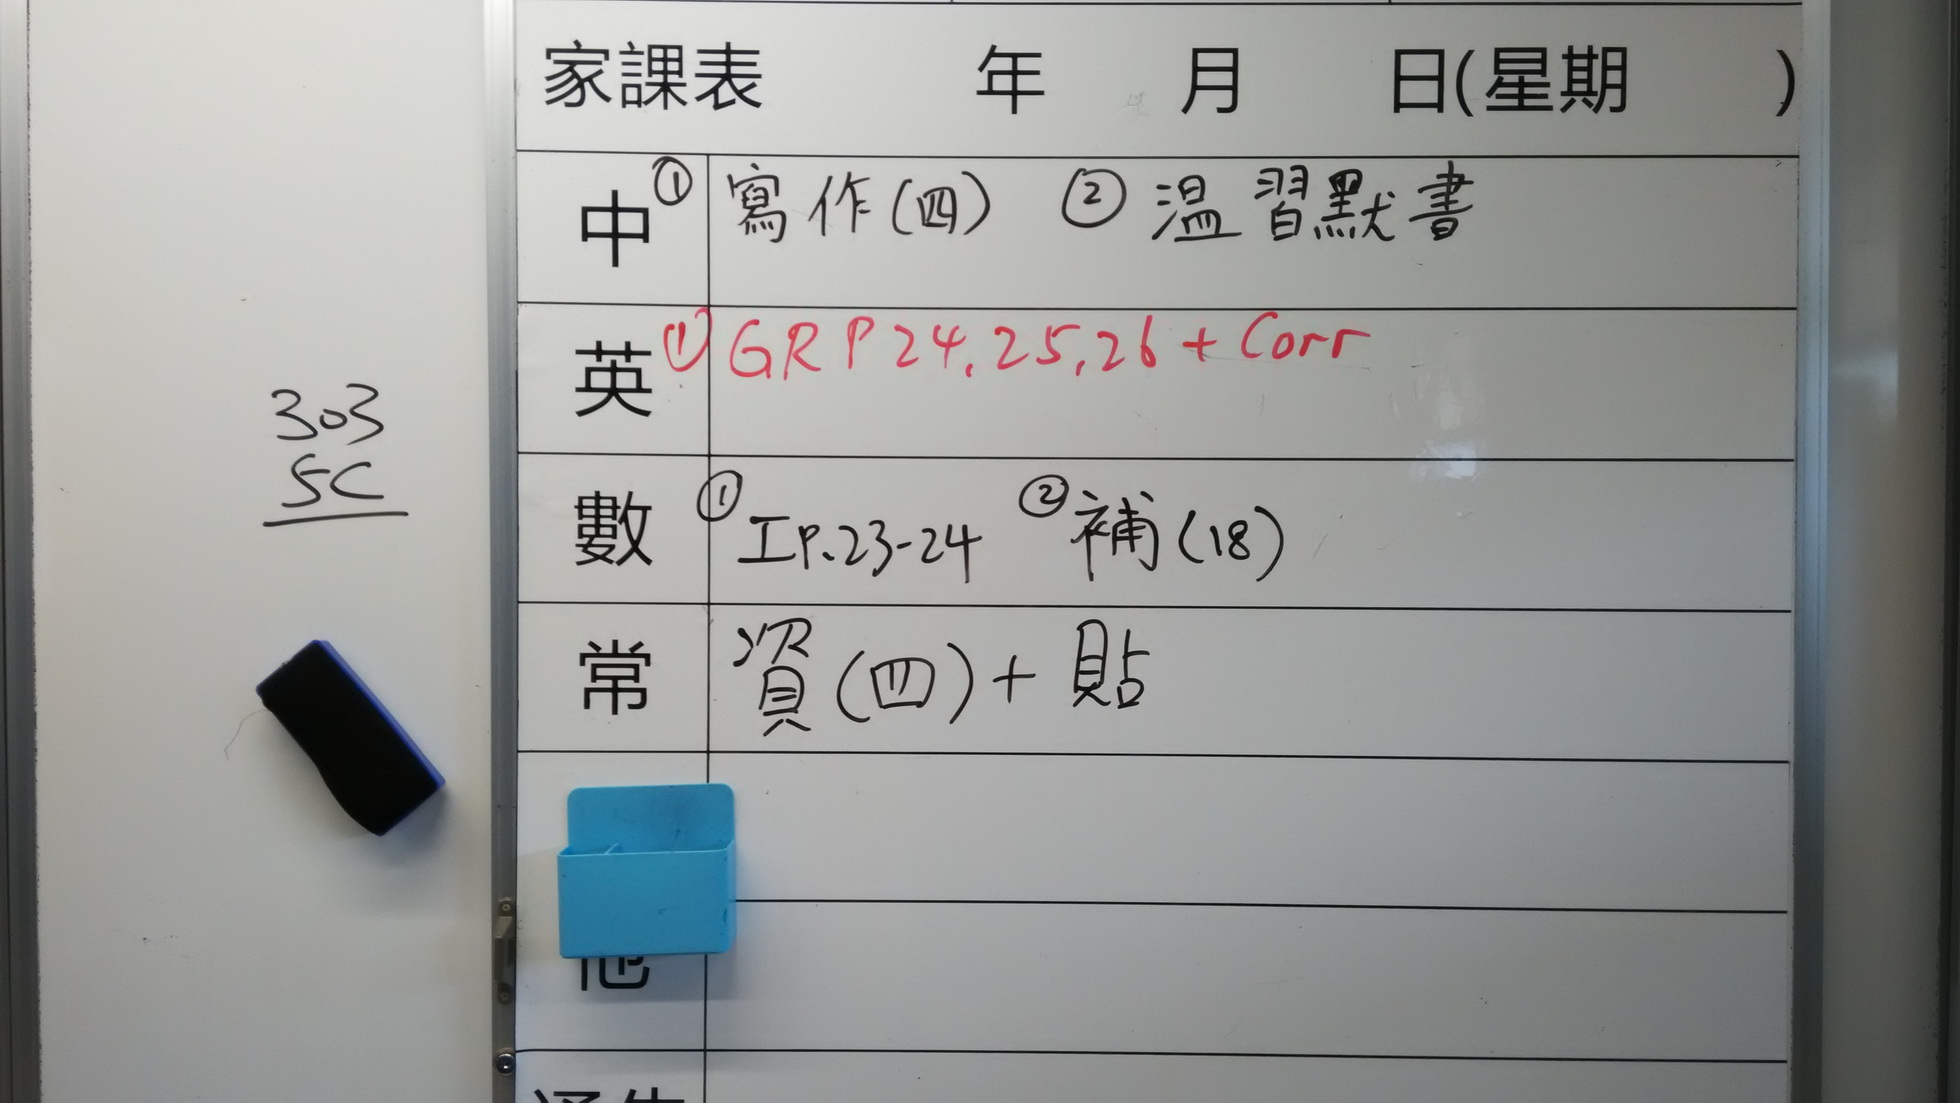 家課表 年 月 日(星期 )
中 ① 寫作(四) ② 溫習默書
英 ① GR P 24, 25, 26 + Corr
303
5C
數 ① 工P.23-24 ② 補(18)
常 資(四)+貼
他